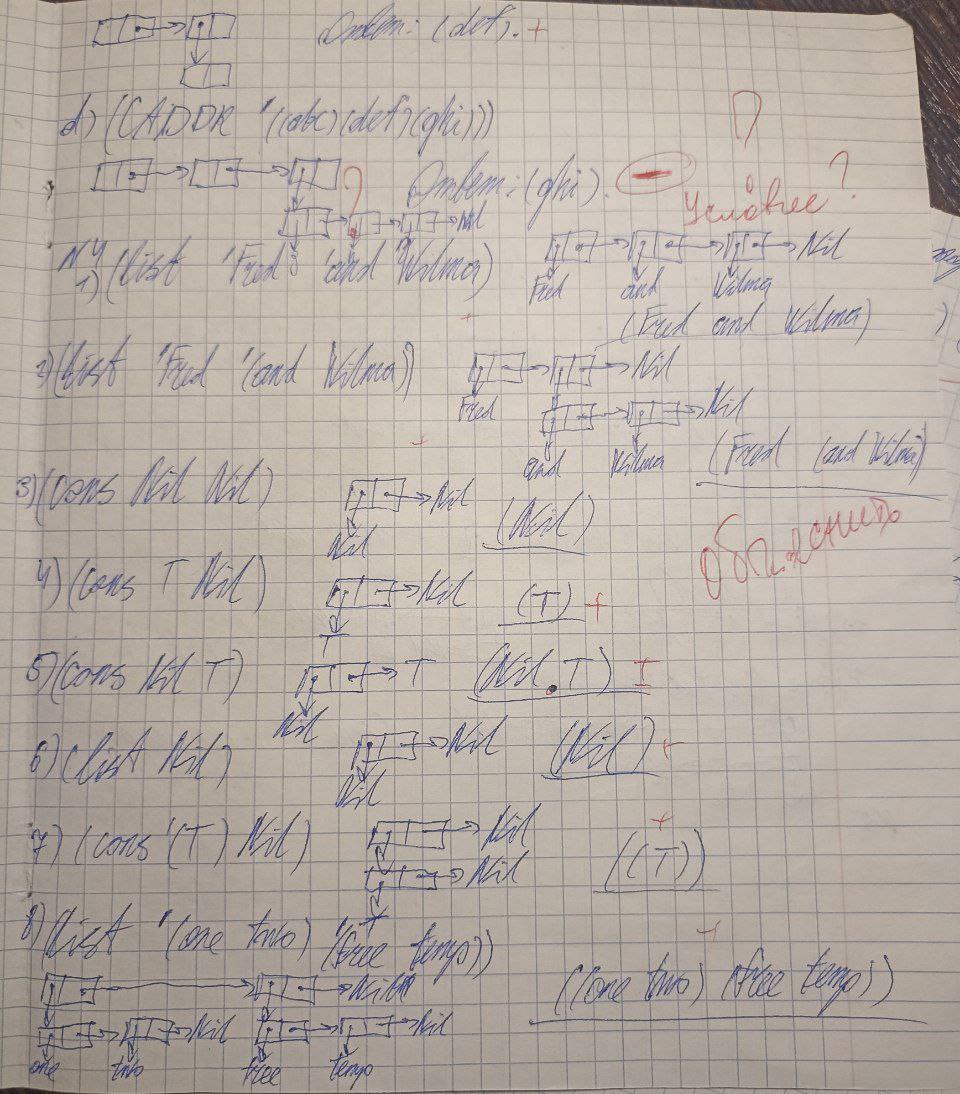 Ответ: (def). +
d) (CADDR '((abc)(def)(ghi)))
Ответ: (ghi). —
?
Условие?
Nil
N4
1) (list 'Fred 'and 'Wilma)
Nil
Fred and Wilma
(Fred and Wilma)
+
2) (list 'Fred '(and Wilma))
Nil
Fred
Nil
and Wilma
(Fred (and Wilma))
+
3) (cons Nil Nil)
Nil
Nil
(Nil)
Объяснить
4) (cons T Nil)
Nil
T
(T) +
5) (cons Nil T)
T
Nil
(Nil . T) ±
6) (list Nil)
Nil
Nil
(Nil) +
7) (cons '(T) Nil)
Nil
Nil
T
((T))
+
8) (list '(one two) '(free temp))
Nil
Nil Nil
one two free temp
((one two) (free temp))
+